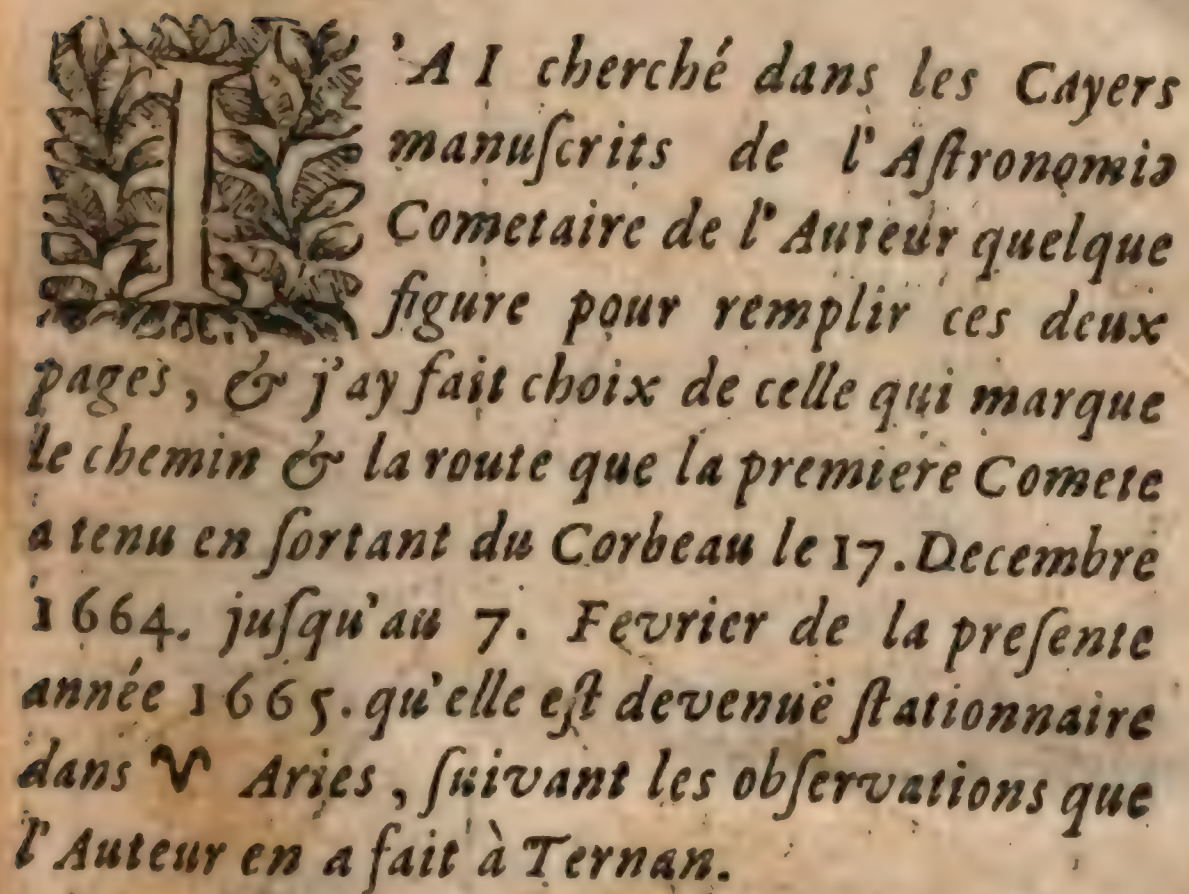 J'AI cherché dans les Cayers
manuſcrits de l'Aſtronomie
Cometaire de l'Auteur quelque
figure pour remplir ces deux
pages, & j'ay fait choix de celle qui marque
le chemin & la route que la premiere Comete
a tenu en ſortant du Corbeau le 17. Decembre
1664. juſqu'au 7. Fevrier de la preſente
année 1665. qu'elle eſt devenuë ſtationnaire
dans ♈ Aries, ſuivant les obſervations que
l'Auteur en a fait à Ternan.